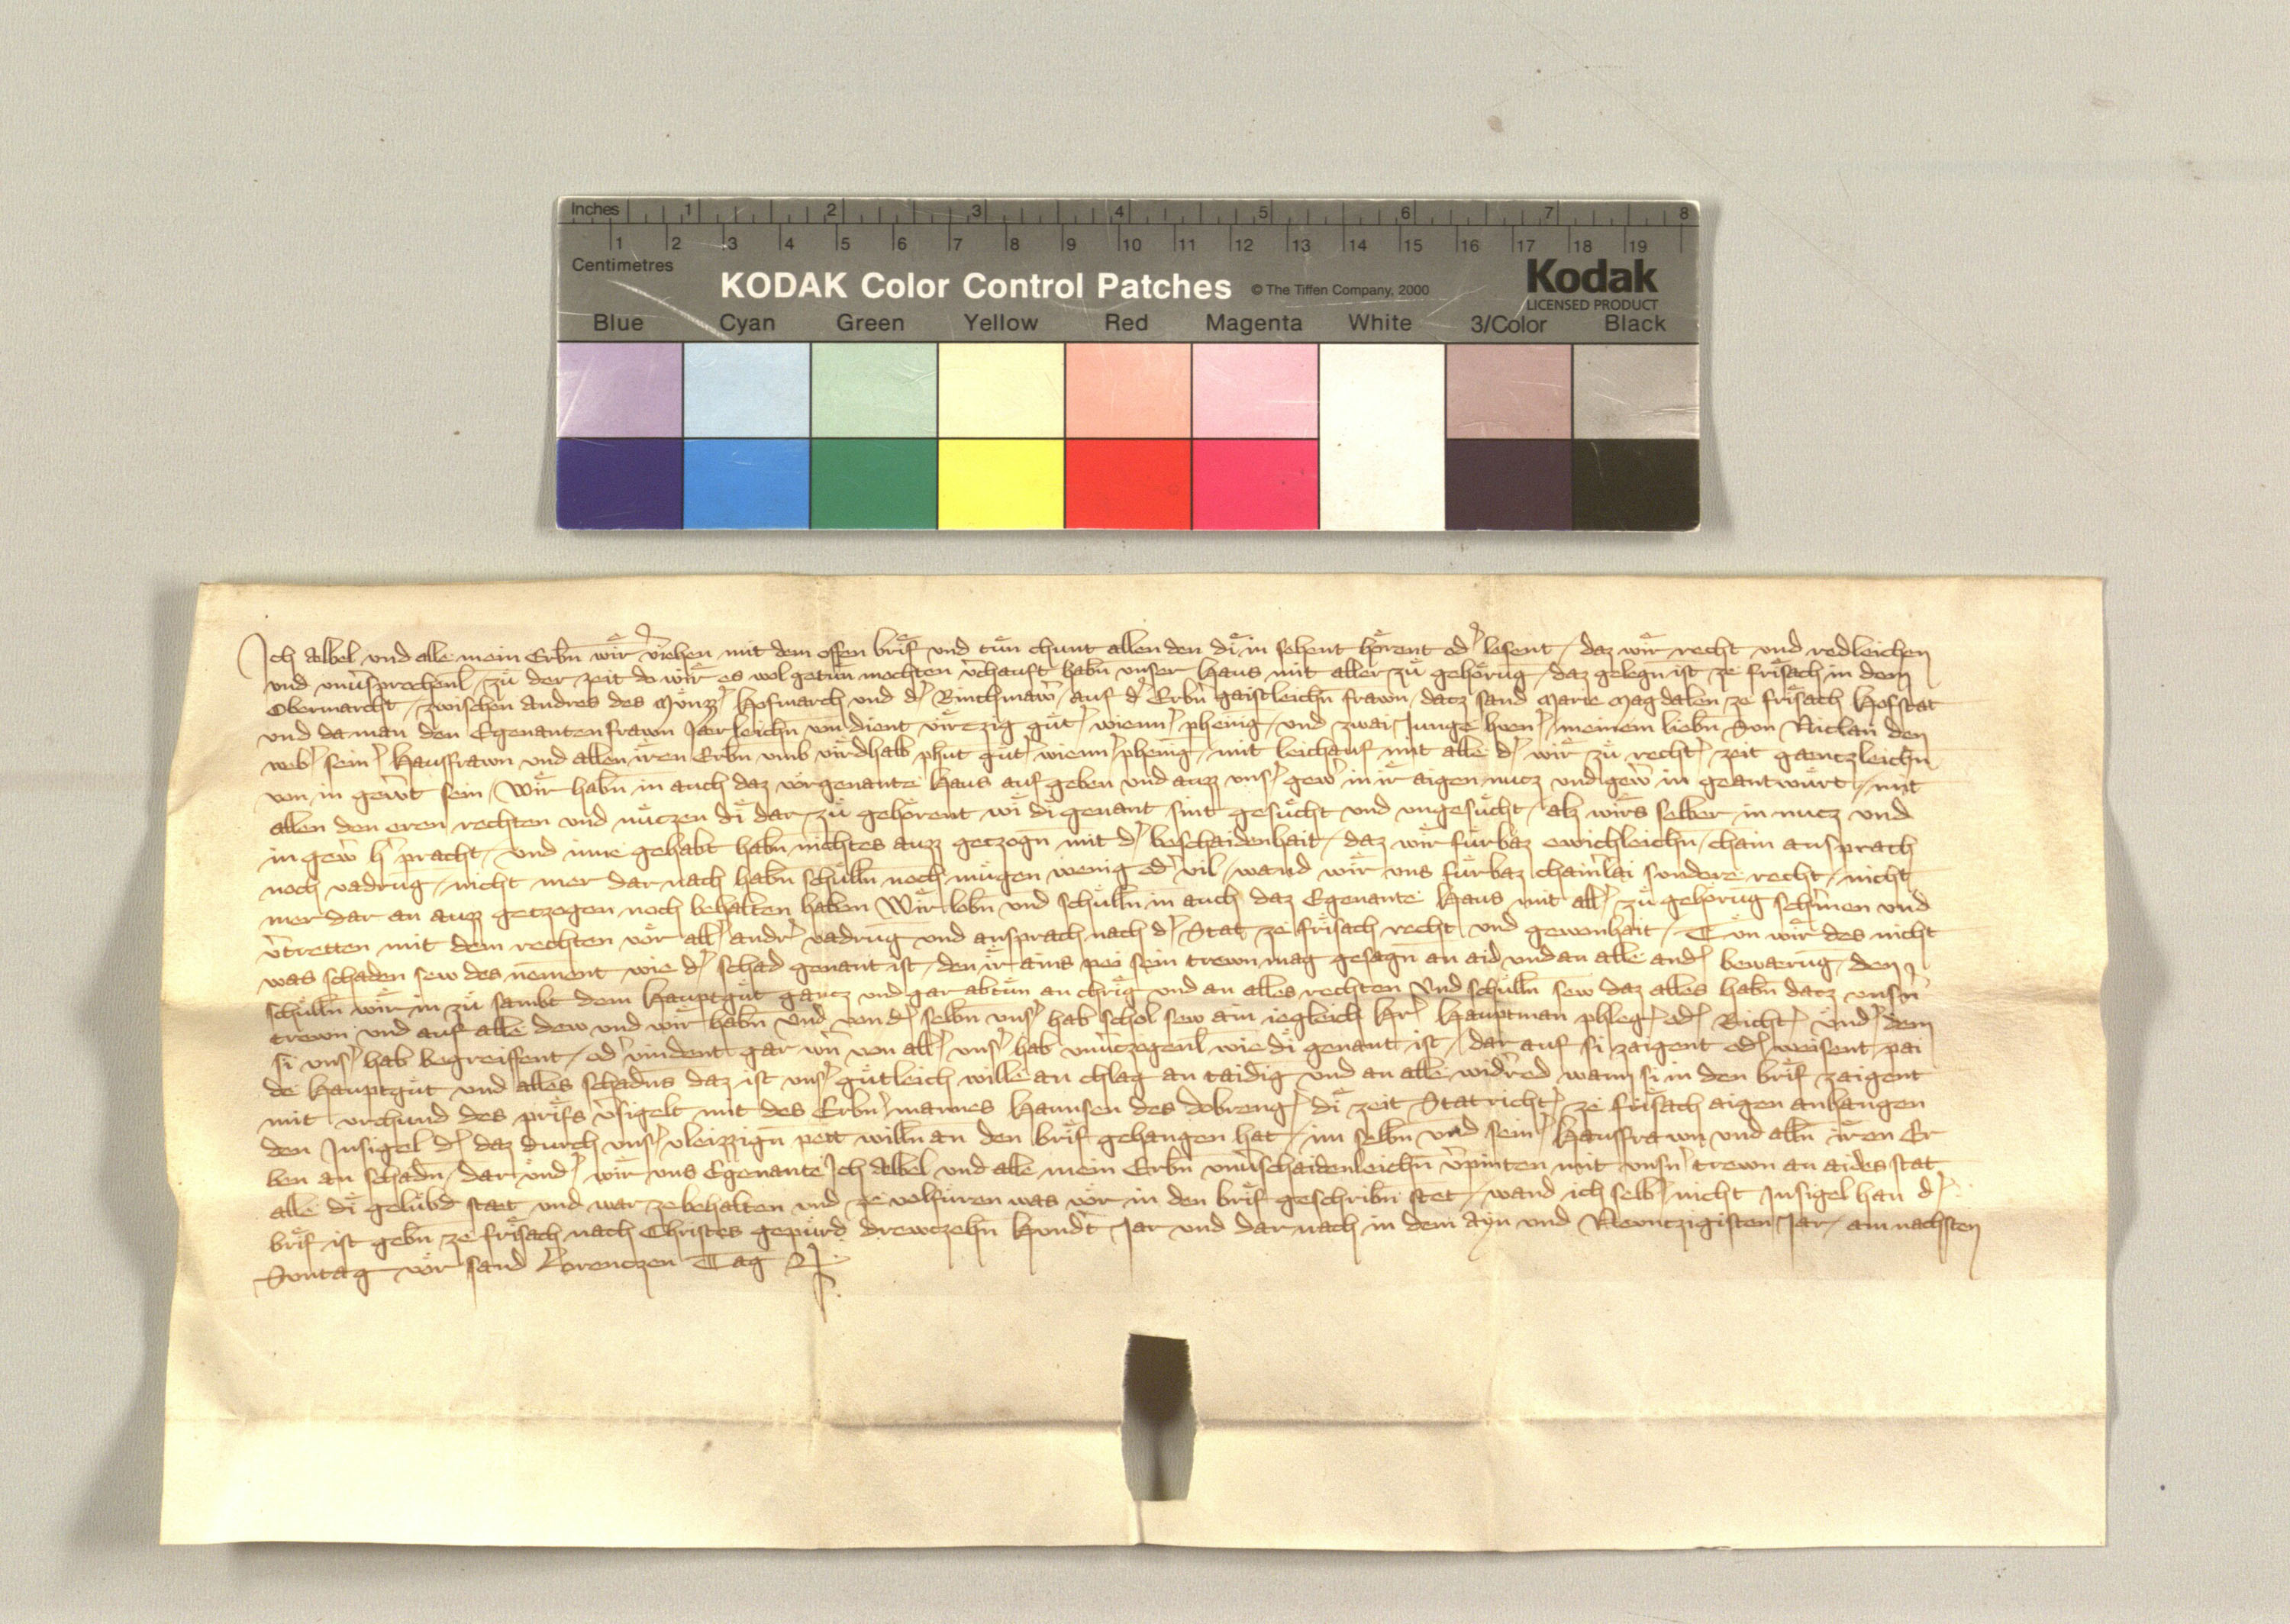 Inches 1 2 3 4 5 6 7 8
1 2 3 4 5 6 7 8 9 10 11 12 13 14 15 16 17 18 19
Centimetres
KODAK Color Control Patches © The Tiffen Company, 2000 Kodak
LICENSED PRODUCT
Blue Cyan Green Yellow Red Magenta White 3/Color Black
Ich albel vnd alle mein Erbn̄ wir v̓iehen mit dem offen brif vnd tůn chunt allen den di in sehent hörent od̓ lesent / daz wir recht vnd redleichen
vnd vnu̓sprochenl̄ / zů der zeit do wir es wol getůn mochten v̓chauft habn̄ vnser Haus mit aller zů gehörūg / daz gelegn̄ ist ze frisach in dem
Obermarcht / zwischen Andres des Münzz̓ Hofmarch vnd d̓ Rinchmaw̓ / auf d̓ Erbn̄ gaistleichn̄ frawn / datz sand Marie Magdalen ze frisach Hofstat
vnd da man den Egenanten frawn Jaerleichn̄ von dient virtzig gůt̓ wienn̓ phenig / vnd zwai Junge hven̓ / meinem liebn̄ Svn Niclan̄ den
web̓ sein̓ Hausfrawn vnd allen iren Erbn̄ vmb virdhalb phut gůt̓ wienn̓ phenig / mit leichauf mit alle d̓ wir zů recht̓ zeit gaentzleichn̄
von in gew̓t sein / Wir habn̄ in auch daz vorgenante Haus auf geben vnd auzz vns̓ gew̓ in ir aigen nucz vnd gew̓ in geantwurt / mit
allen den eren rechten vnd nůczen di dar zů gehörent wi di genant sint gesůcht vnd vngesůcht / alz wirs selber in nucz vnd
in gew̓ h̓ pracht / vnd inne gehabt habn̄ nichtes auzz getzogn̄ mit d̓ beschaidenhait / daz wir fůrbaz ewichleichn̄ / chain ansprach
noch vadrūg / nicht mer dar nach habn̄ schülln̄ noch mügen wenig od̓ vil / wand wir vns fürbaz chain̓lai sundere recht / nicht
mer dar an auzz getzogen noch behalten haben Wir lobn̄ vnd schülln̄ in auch daz Egenante Haus mit all̓ zů gehörūg sch̓men vnd
v̓tretten mit dem rechten vor all̓ andr̓ vadrūg vnd ansprach nach d̓ Stat ze frisach recht vnd gewonhait / Tůn wir des nicht
was schaden sew des nement wie d̓ schad genant ist / den ir ains pei sein trewn mag gesagn̄ an aid vnd an alle and̓ bewaerūg / den
schülln̄ wir in zů sambt dem Hauptgůt gantz vnd gar abtůn an chrig vnd an alles rechten Vnd schülln̄ sew daz alles habn̄ datz vnsn̓
trewn vnd auf alle dew vnd wir habn̄ Vnd von d̓ selbn̄ vns̓ hab schol sew ain iegleich Hr̓ Hauptman phleg̓ od̓ Richt̓ vnd̓ dem
si vns̓ hab begreiffent / od̓ vindent gar w̓n von all̓ vns̓ hab vnu̓tzogenl̄ wie di genant ist / dar auf si zaigent od̓ weisent / pai
de Hauptgůt vnd alles schadns daz ist vns̓ gůtleich wille an chlag an taidig vnd an alle wid̓red wann si in den brif zaigent
mit vrchund des prifs v̓sigelt mit des Erbn̓ mannes Hannsen des dobreng̓ di zeit Statricht̓ ze frisach aigen anhangen
den Insigel d̓ daz durch vns̓ vleizzign̄ pett willn̄ an den brif gehangen hat / im selbn̄ vnd sein̓ Hausfrawn vnd alln̄ iren Er
ben an schadn / dar vnd̓ wir vns Egenante Ich Albel vnd alle mein Erbn̄ vnu̓schaidenleichn̄ v̓pinten mit vnsn̓ trewn an aides stat
alle di gelübd staet vnd war ze behalten vnd ze volfüren was vor in den brif geschribn̄ stet / wand ich selb̓ nicht Insigel han d̓
brif ist gebn̄ ze frisach nach Christes gepürd drewczehn̄ Hundt̓ Jar vnd dar nach in dem ayn vnd Newntzigisten Jar / am nachsten
Svntag vor sand Lorenczen Tag